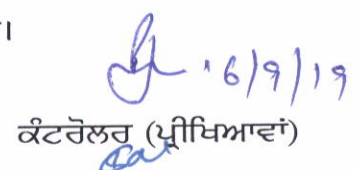 ।
16/9/19
ਕੰਟਰੋਲਰ (ਪ੍ਰੀਖਿਆਵਾਂ)